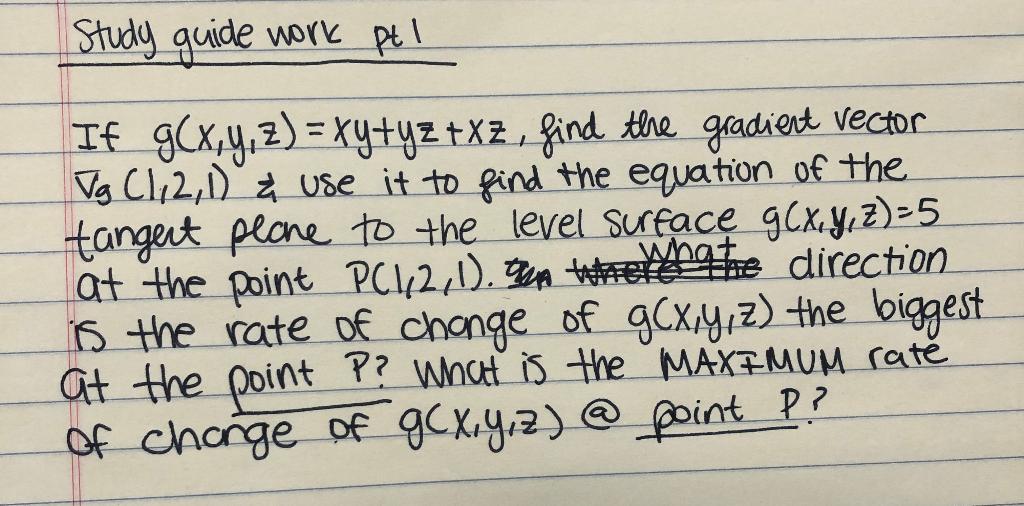 Study guide work pt 1
If g(x,y,z) = xy+yz+xz, find the gradient vector
∇g (1,2,1) & use it to find the equation of the
tangent plane to the level surface g(x,y,z)=5
at the point P(1,2,1). What direction
is the rate of change of g(x,y,z) the biggest
at the point P? What is the MAXIMUM rate
of change of g(x,y,z) @ point P?